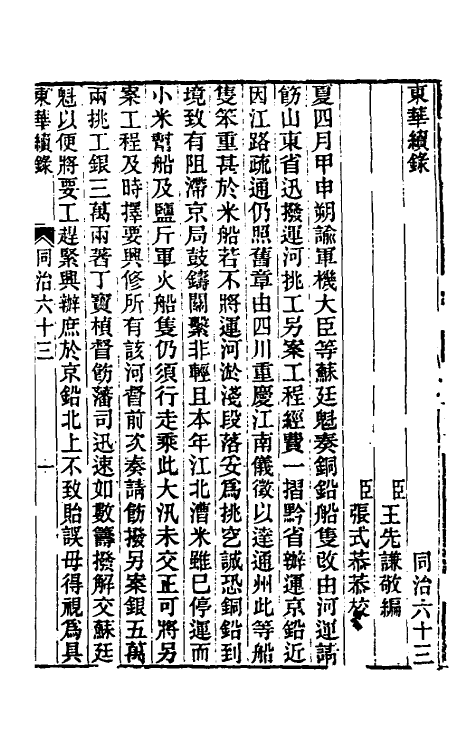 東華續錄
同治六十三
臣王先謙敬編
臣張式恭恭校
夏四月甲申朔諭軍機大臣等蘇廷魁奏銅鉛船隻改由河運請
飭山東省迅撥運河挑工另案工程經費一摺黔省辦運京鉛近
因江路疏通仍照舊章由四川重慶江南儀徵以達通州此等船
隻笨重甚於米船若不將運河淤淺段落妥爲挑空誠恐銅鉛到
境致有阻滯京局鼓鑄關繫非輕且本年江北漕米雖已停運而
小米幫船及鹽斤軍火船隻仍須行走乘此大汛未交正可將另
案工程及時擇要興修所有該河督前次奏請飭撥另案銀五萬
兩挑工銀三萬兩著丁寶楨督飭藩司迅速如數籌撥解交蘇廷
魁以便將要工趕緊興辦庶於京鉛北上不致貽誤毋得視爲具
東華續錄
同治六十三
一